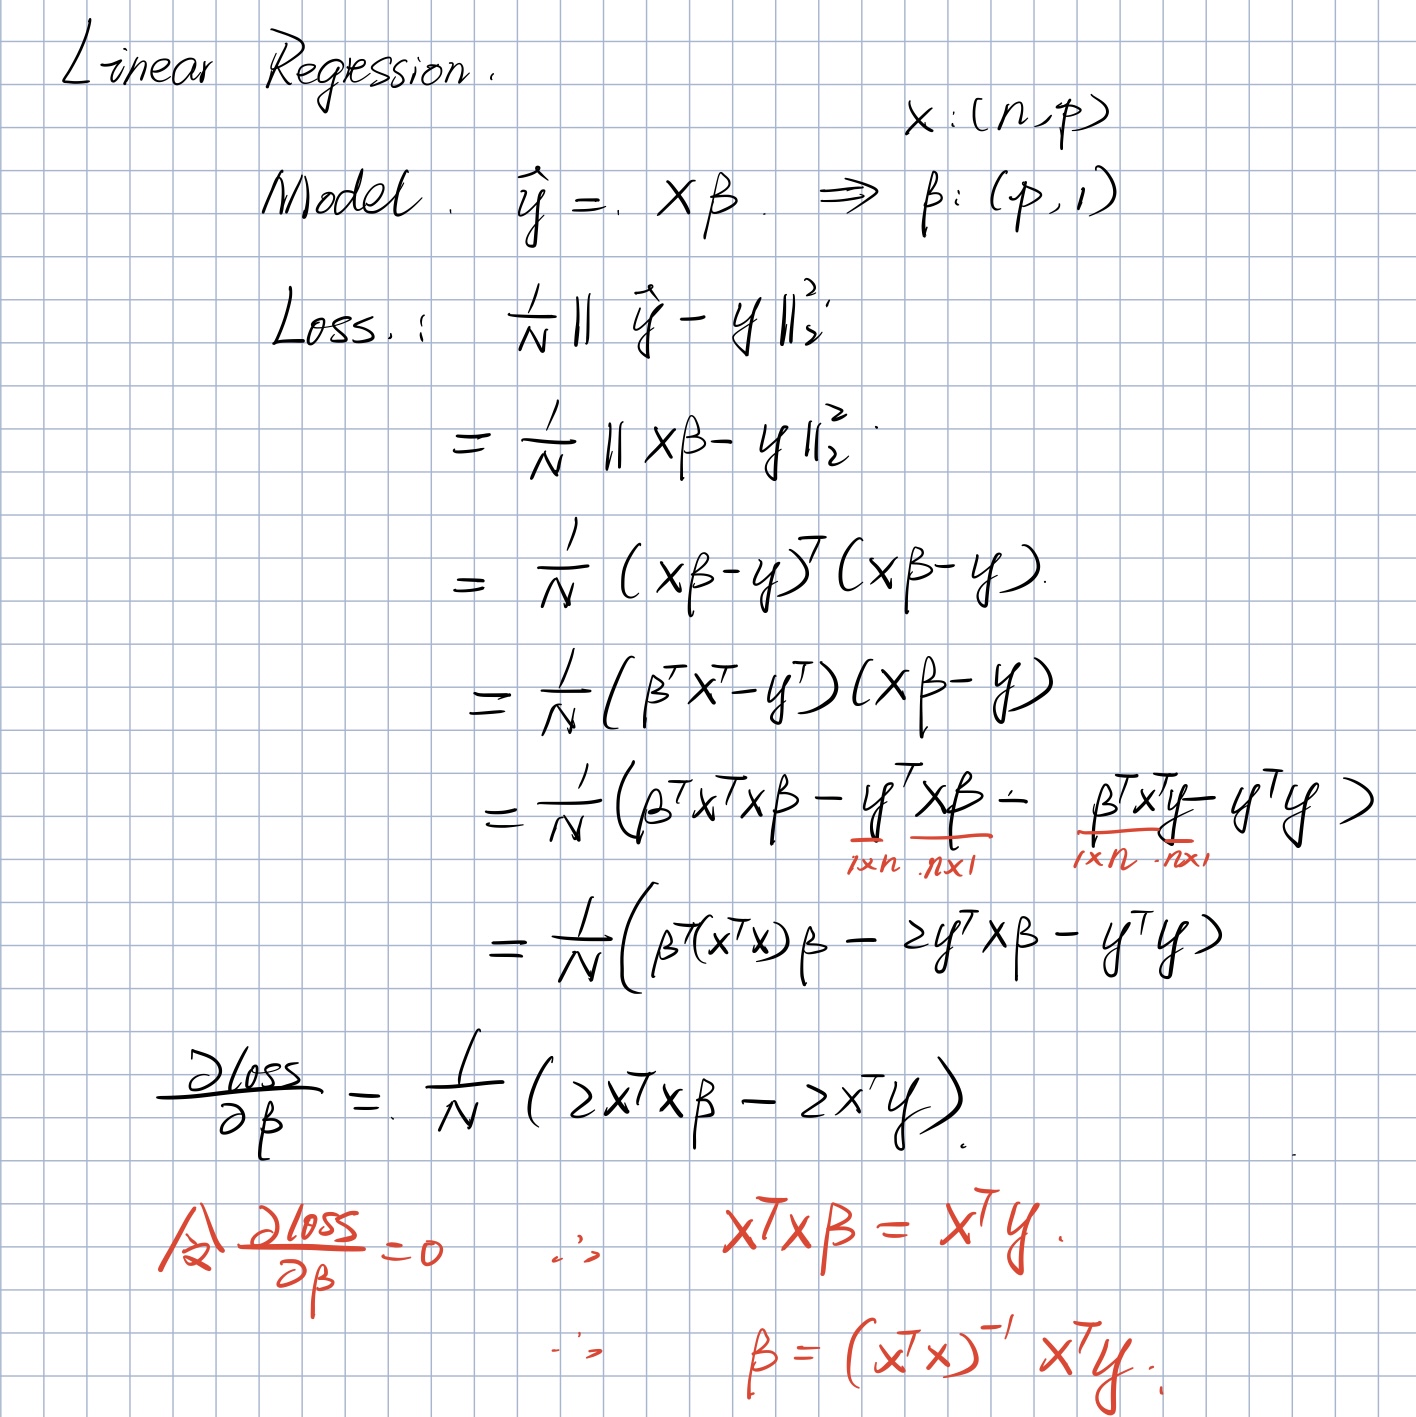 Linear Regression.
X: (n, p)
Model. ŷ = Xβ. ⇒ β: (p, 1)
Loss.: 1/N ‖ŷ - y‖₂²
= 1/N ‖Xβ - y‖₂²
= 1/N (Xβ - y)ᵀ (Xβ - y).
= 1/N (βᵀXᵀ - yᵀ)(Xβ - y)
= 1/N (βᵀXᵀXβ - yᵀXβ - βᵀXᵀy - yᵀy)
1×n .n×1 1×n .n×1
= 1/N (βᵀ(XᵀX)β - 2yᵀXβ - yᵀy)
∂loss/∂β = 1/N (2XᵀXβ - 2Xᵀy).
令 ∂loss/∂β = 0 ∴ XᵀXβ = Xᵀy.
∴ β = (XᵀX)⁻¹ Xᵀy.